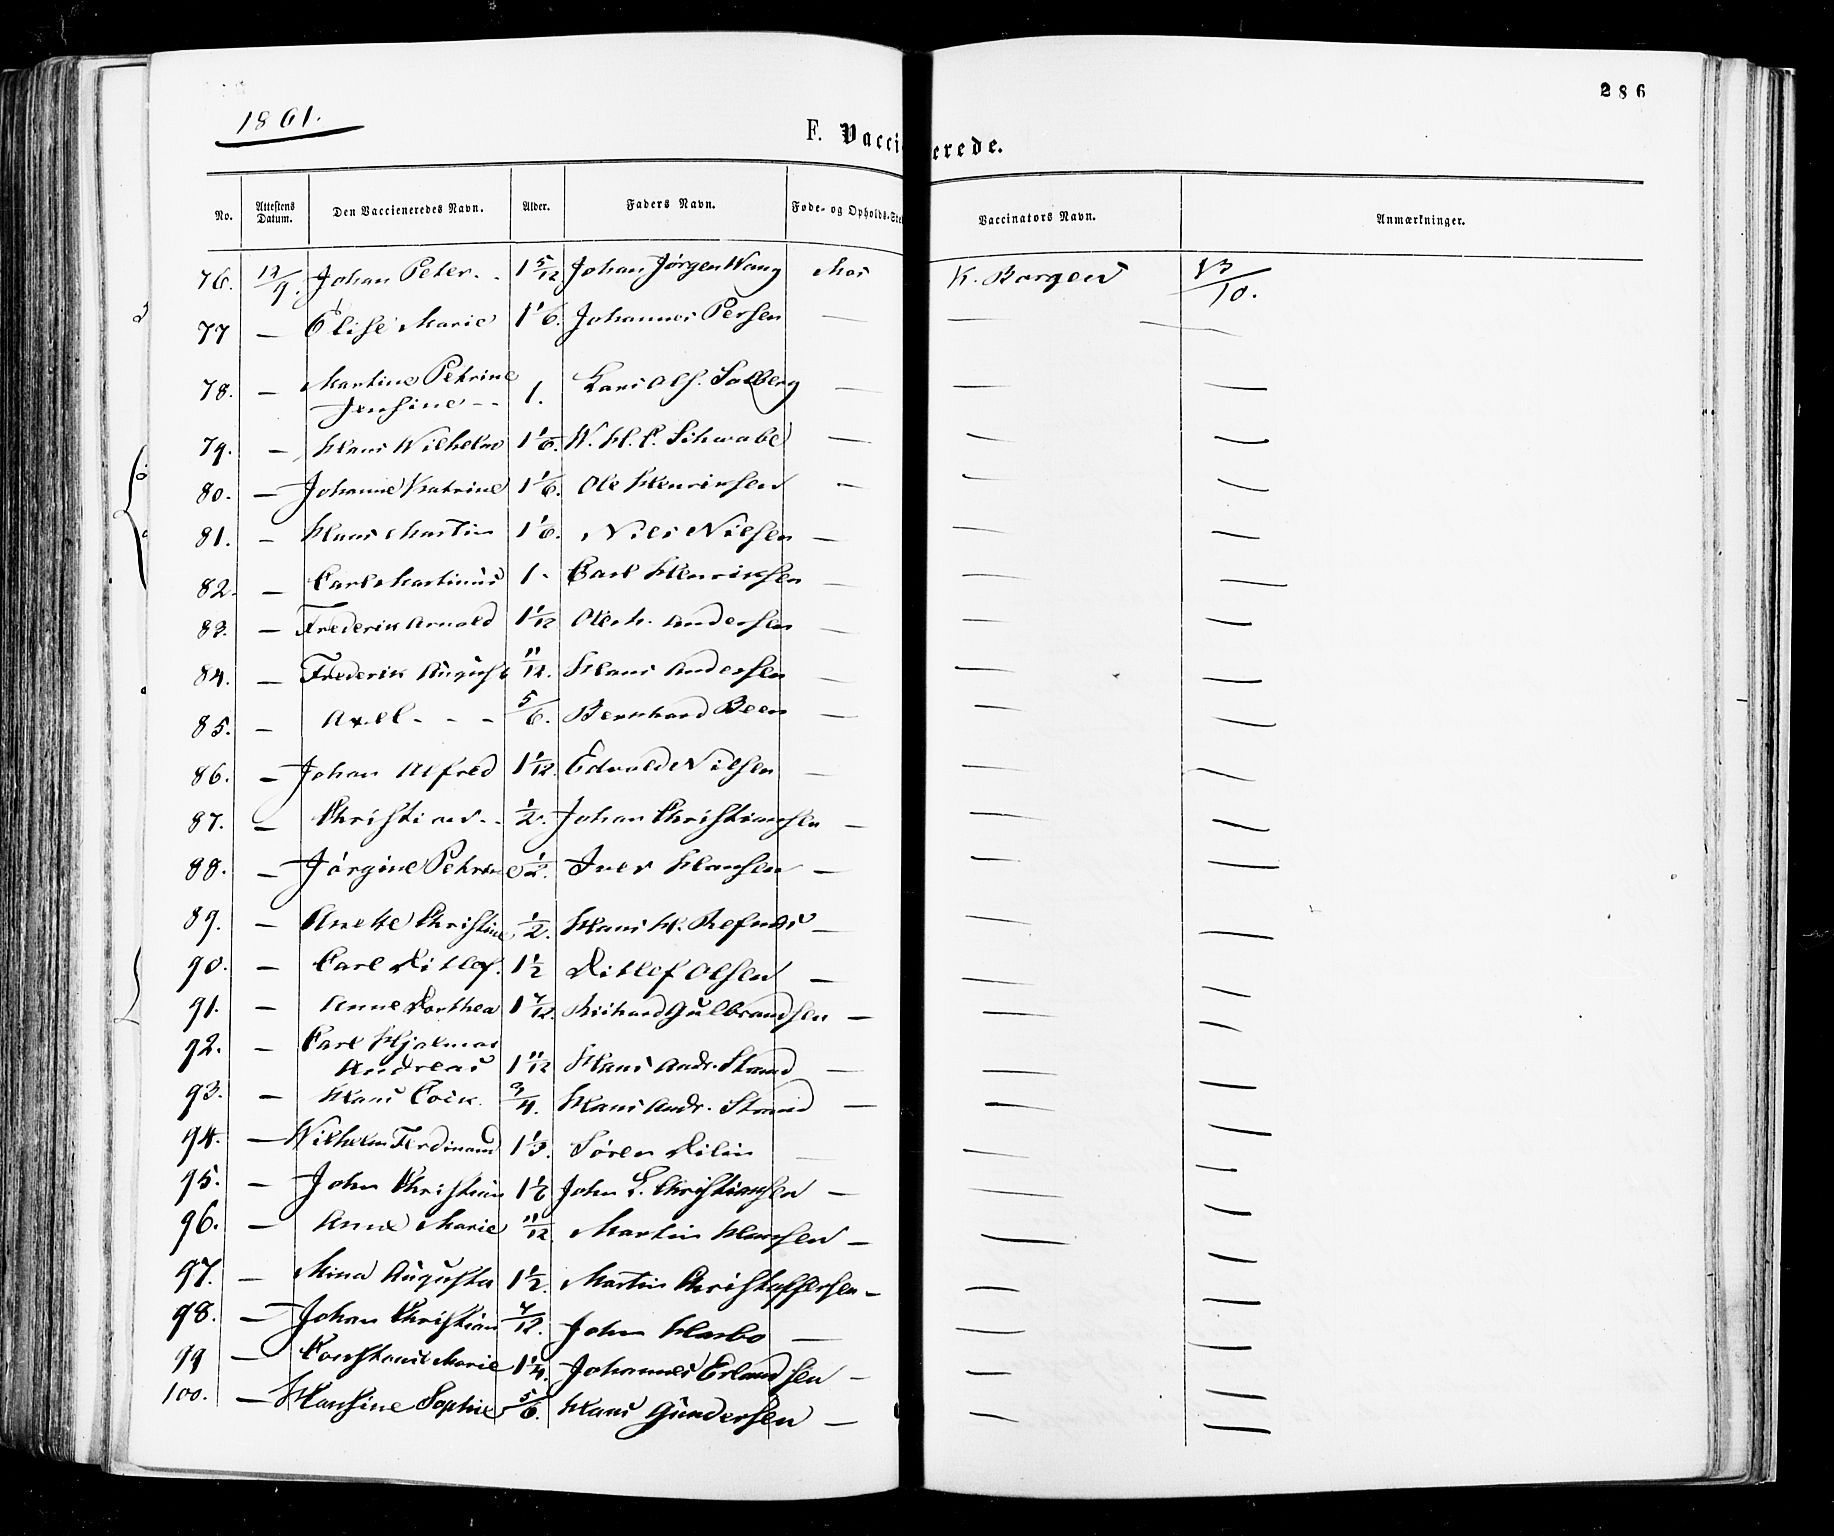 286
1861.
F. Vacci erede.
No. Attestens Datum. Den Vaccieneredes Navn. Alder. Faders Navn. Føde- og Opholds-Ste Vaccinators Navn. Anmærkninger.
76. 12/9. Johan Peter. - 1 5/12 Johan Jörgen Wang Mos K. Borgen 13/10.
77 — Elise Marie 1 1/6. Johannes Persen — — —
78. — Martine Petrine
Jensine - - 1. Lars Ols. Solberg — — —
79. — Hans Wilhelm 1 1/6. W. H. C. Schwabe — — —
80. — Johanne Katrine 1 1/6. Ole Henriksen — — —
81. — Hans Martin 1 1/6. Nils Nilsen — — —
82. — Carl Martinus 1 - Carl Henriksen — — —
83. — Frederik Arnold 1 1/12 Ole M. Andersen — — —
84. — Frederik August 11/12. Hans Andersen — — —
85. — Axel - - - 5/6. Bernhard Been — — —
86. — Johan Alfred 1 1/12. Edvald Nilsen — — —
87. — Christian - - 1/2. Johan Christiansen — — —
88. — Jörgine Petrine 1/2. Iver Hansen — — —
89. — Anette Christine 1/2. Hans H. Refnes — — —
90. — Carl Ditlef. 1 1/2 Ditlef Olsen — — —
91. — Anne Dorthea 1 7/12. Richard Gulbrandsen — — —
92. — Carl Hjalmar
Andreas 1 11/12 Hans Andr. Strand — — —
93. — Hans Coick. 3/4. Hans Andr. Strand — — —
94. — Wilhelm Ferdinand 1 1/3. Sören — — —
95. — John Christian 1 1/6 John L. Christiansen — — —
96. — Anne Marie 11/12 Martin Hansen — — —
97. — Mina Augusta 1 1/2. Martin Christoffersen — — —
98. — Johan Christian 7/12. John Harbo — — —
99 — Constanse Marie 1 1/4. Johannes Erlandsen — — —
100. — Hansine Sophie 5/6. Hans Gundersen — — —